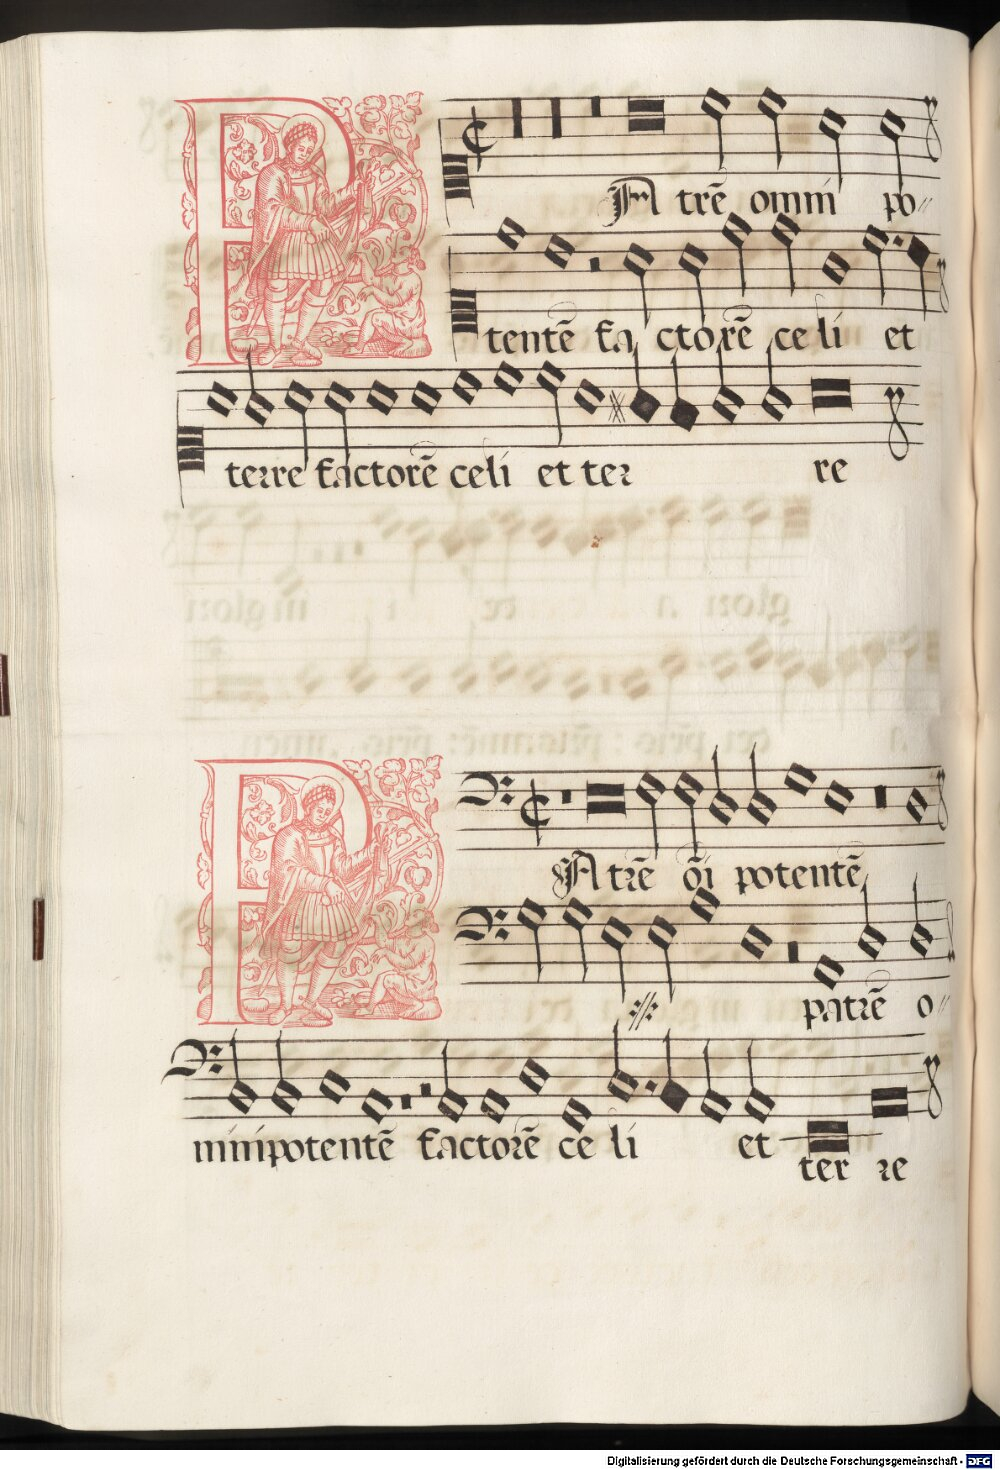 PAtrē omni po〃
tentē factorē celi et
terre factorē celi et ter re
PAtrē oī potentē
patrē o〃
mnipotentē factorē celi et ter re
Digitalisierung gefördert durch die Deutsche Forschungsgemeinschaft - DFG